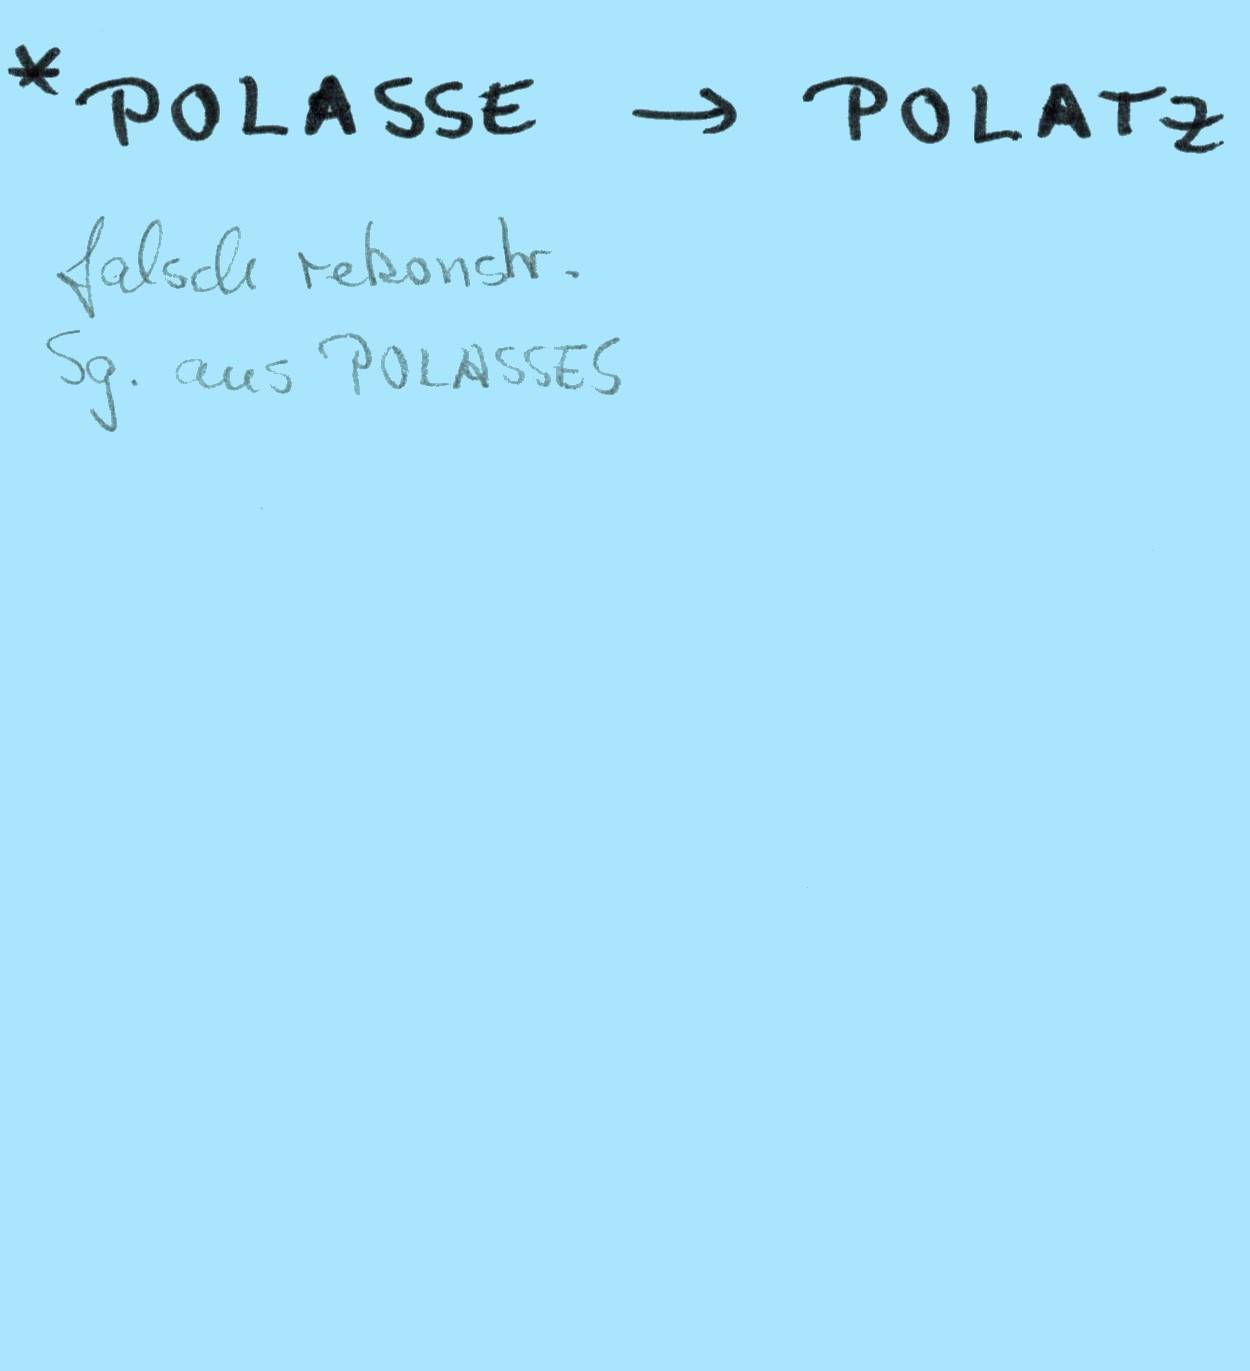 *POLASSE → POLATZ
falsch rekonstr.
Sg. aus POLASSES